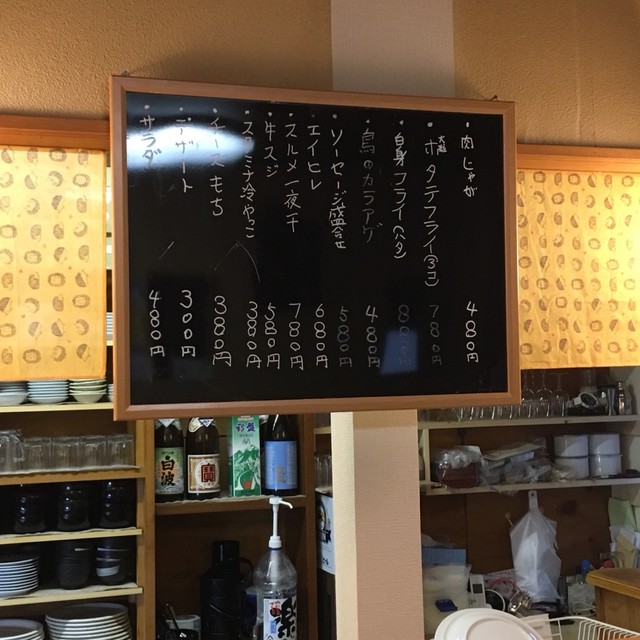 ・肉じゃが 480円
・ホタテフライ(3コ) 780円
・白身フライ(ヘタ) 800円
・鳥のカラアゲ 480円
・ソーセージ盛合 580円
・エイヒレ 680円
・スルメ一夜干 780円
・牛スジ 580円
・スタミナ冷やっこ 380円
・チーズもち 380円
・デザート 300円
・サラダ 480円
白波